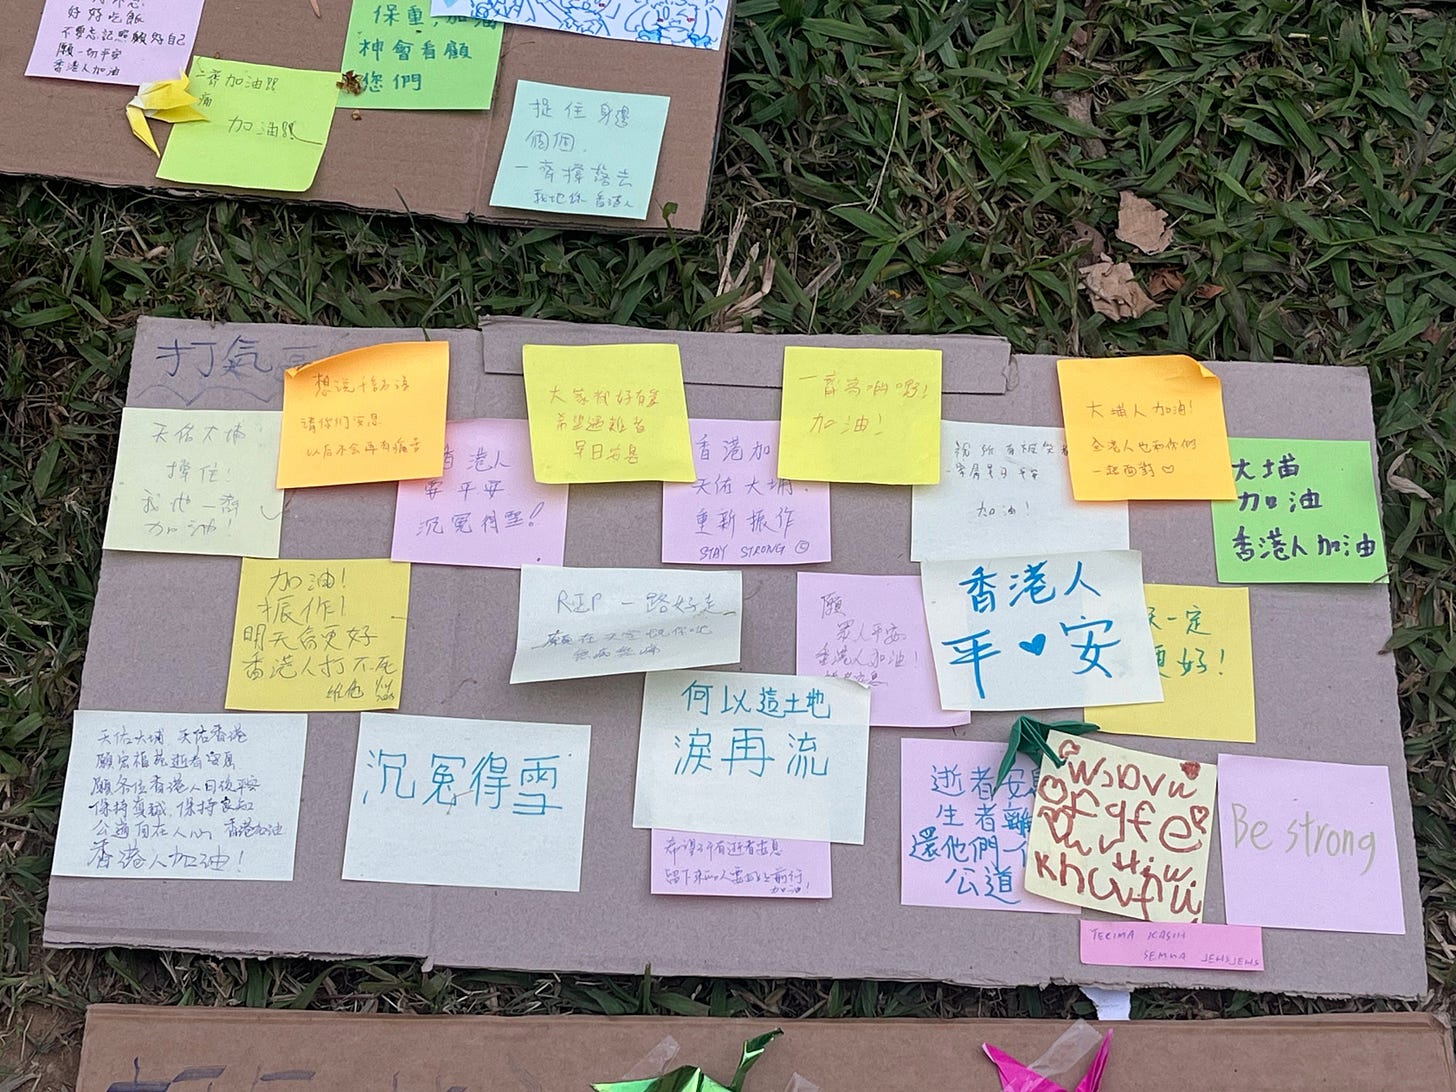 好好吃飯
不要忘記照顧好自己
願一切平安
香港人加油
保重,加油
神會看顧
您們
一齊加油跟
痛
加油
捉住身邊
個個,
一齊撐落去
我地係香港人
打氣
天佑大埔
撐住!
我地一齊
加油!
想说十句话
请你们安息
以后不会再有痛苦
香港人
要平安
沉冤得雪!!
大家都好有愛
希望遇難者
早日安息
香港加
天佑大埔!
重新振作
STAY STRONG
一齊
加油!
祝所有
平安
加油!
大埔人加油!
全港人也和你們
一起面對♡
大埔
加油
香港人加油
加油!
振作!
明天會更好
香港人打不死
RIP 一路好走
願
眾人平安
香港人加油!
香港人
平♥安
天一定
更好!
天佑大埔 天佑香港
願宏福苑逝者安息
願各位香港人日後平安
保持真誠,保持良知
公道自在人心 香港加油
香港人加油!
沉冤得雪
何以這土地
淚再流
希望所有逝者安息
留下來的人要好好前行
加油!
逝者安息
生者
還他們一個
公道
Be strong
TERIMA KASIH
SEMUA